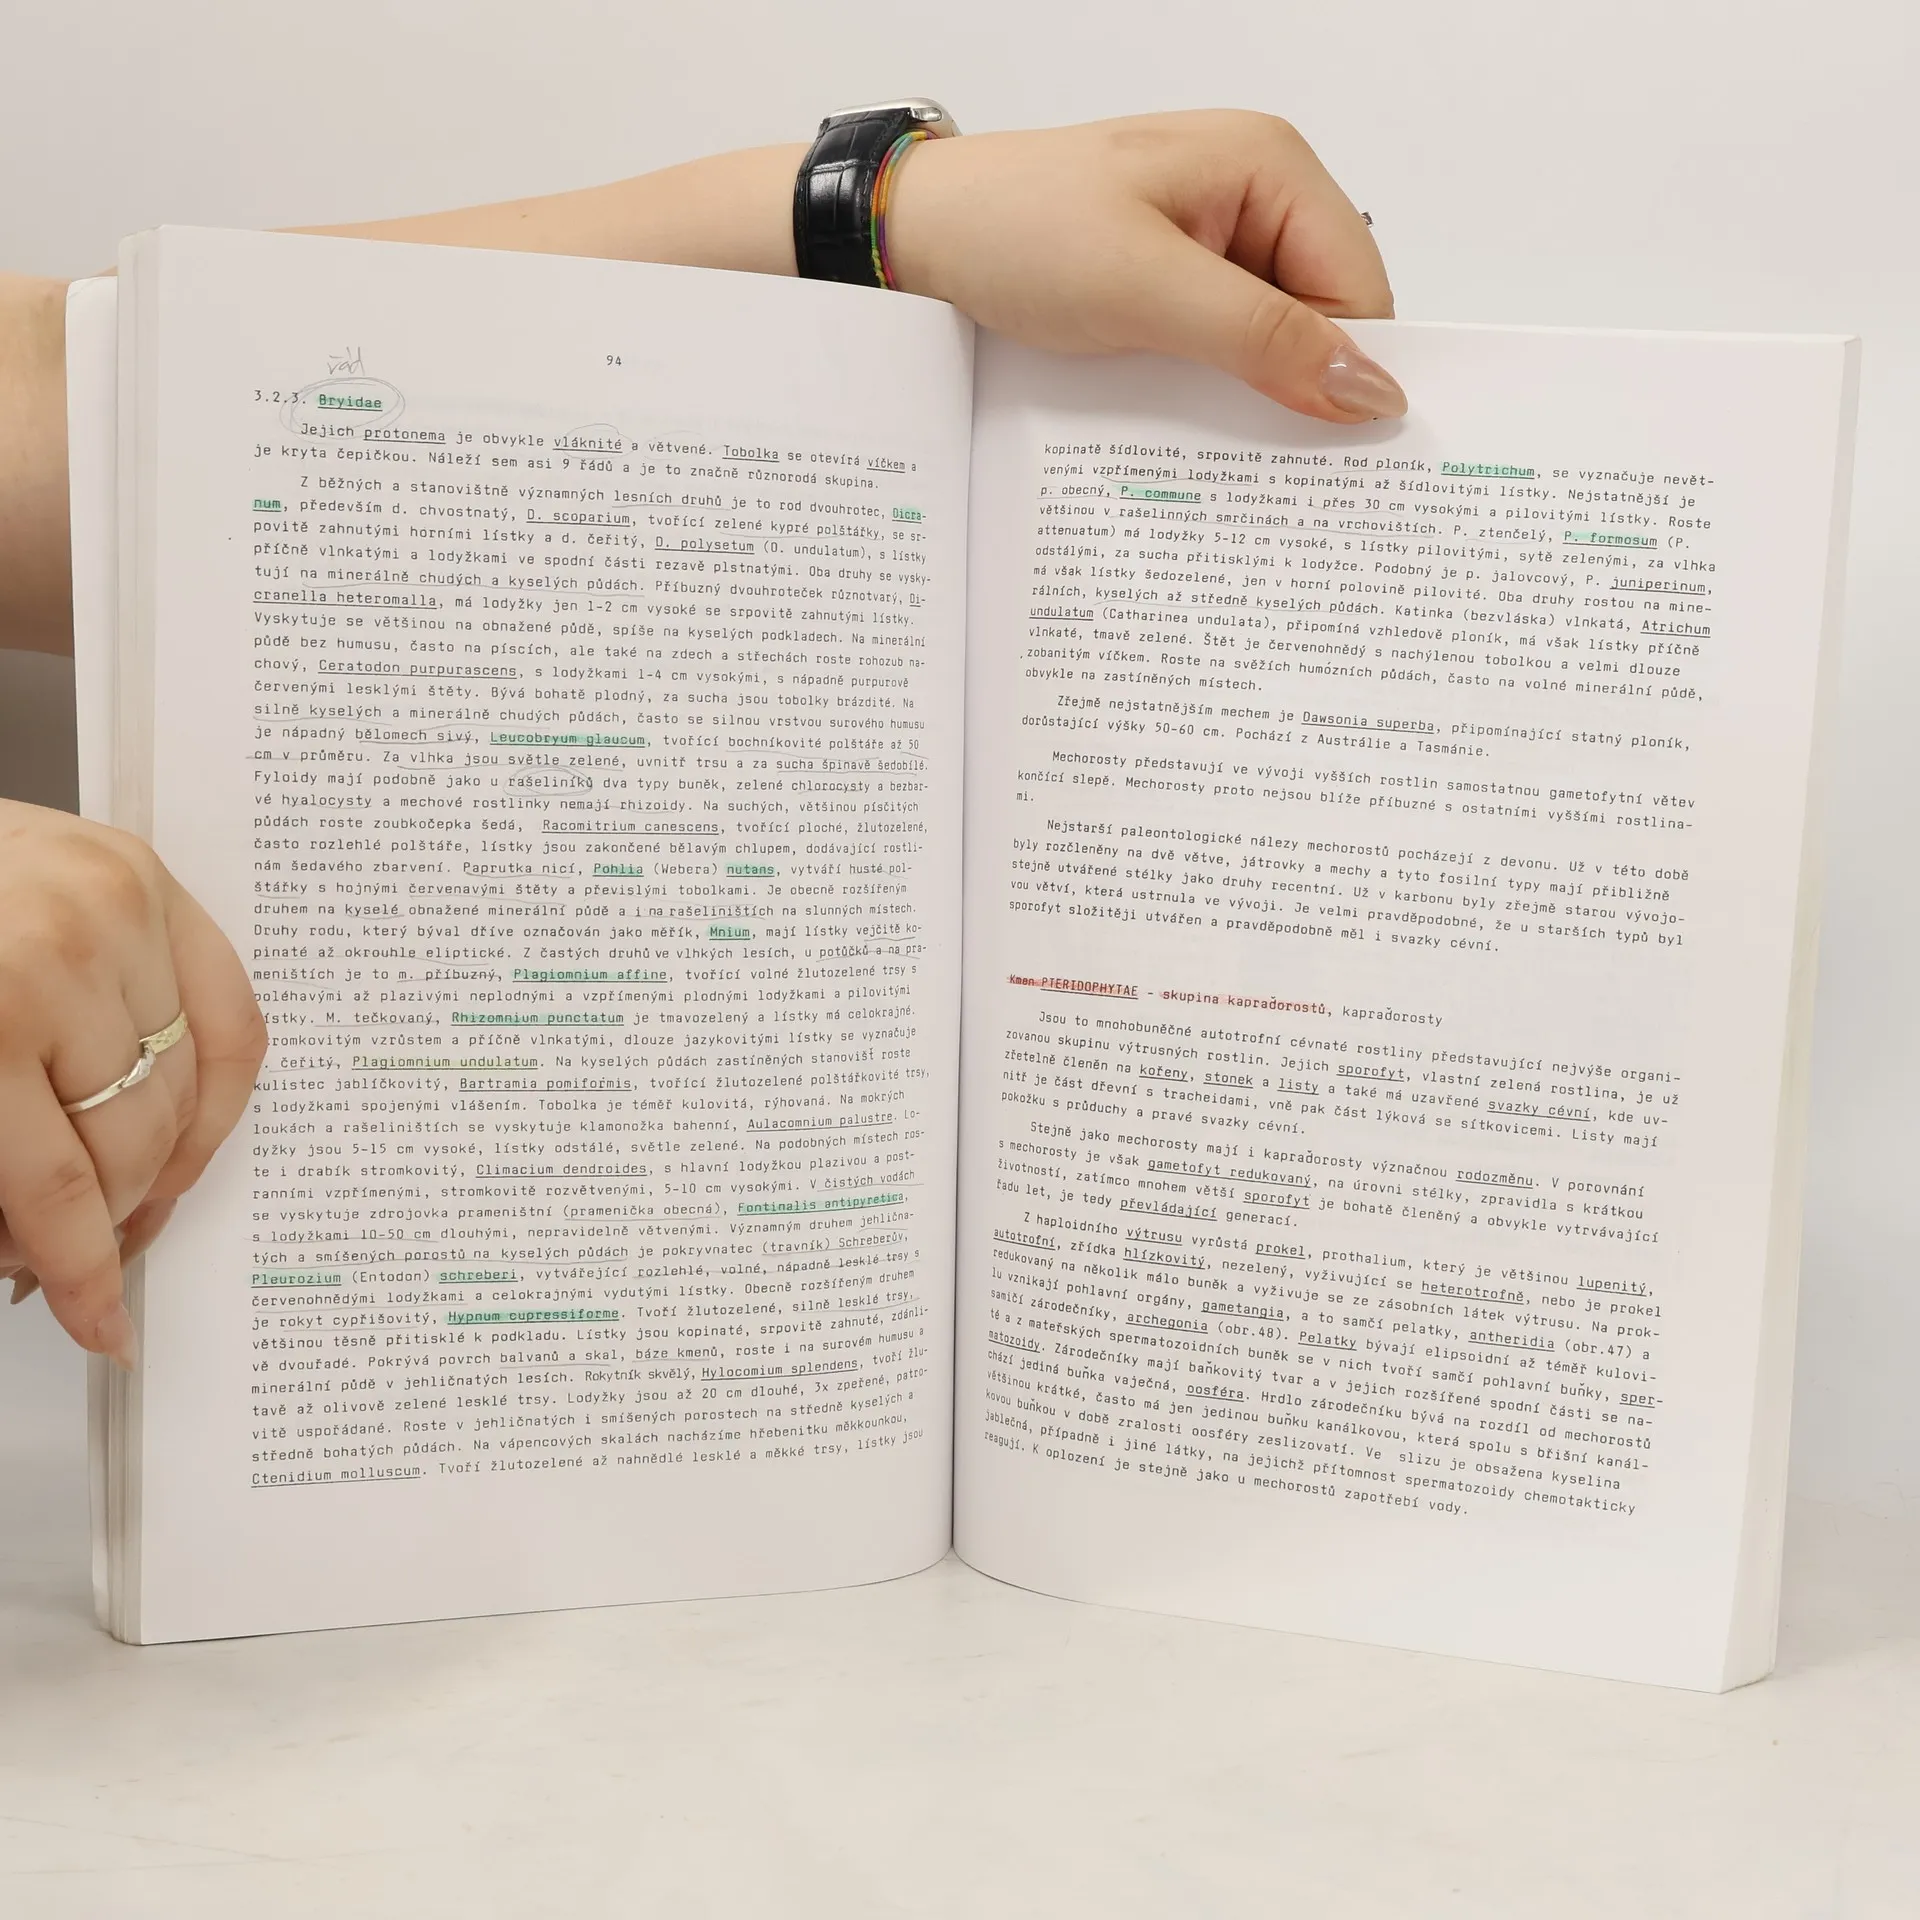 řád
94
3.2.3. Bryidae
Jejich protonema je obvykle vláknité a větvené. Tobolka se otevírá víčkem a
je kryta čepičkou. Náleží sem asi 9 řádů a je to značně různorodá skupina.
Z běžných a stanovištně významných lesních druhů je to rod dvouhrotec, Dicra-
num, především d. chvostnatý, D. scoparium, tvořící zelené kypré polštářky, se sr-
povitě zahnutými horními lístky a d. čeřitý, D. polysetum (D. undulatum), s lístky
příčně vlnkatými a lodyžkami ve spodní části rezavě plstnatými. Oba druhy se vysky-
tují na minerálně chudých a kyselých půdách. Příbuzný dvouhroteček různotvarý, Di-
cranella heteromalla, má lodyžky jen 1-2 cm vysoké se srpovitě zahnutými lístky.
Vyskytuje se většinou na obnažené půdě, spíše na kyselých podkladech. Na minerální
půdě bez humusu, často na píscích, ale také na zdech a střechách roste rohozub na-
chový, Ceratodon purpurascens, s lodyžkami 1-4 cm vysokými, s nápadně purpurově
červenými lesklými štěty. Bývá bohatě plodný, za sucha jsou tobolky brázdité. Na
silně kyselých a minerálně chudých půdách, často se silnou vrstvou surového humusu
je nápadný bělomech sivý, Leucobryum glaucum, tvořící bochníkovité polštáře až 50
cm v průměru. Za vlhka jsou světle zelené, uvnitř trsu a za sucha špinavě šedobílé.
Fyloidy mají podobně jako u rašeliníků dva typy buněk, zelené chlorocysty a bezbar-
vé hyalocysty a mechové rostlinky nemají rhizoidy. Na suchých, většinou písčitých
půdách roste zoubkočepka šedá, Racomitrium canescens, tvořící ploché, žlutozelené,
často rozlehlé polštáře, lístky jsou zakončené bělavým chlupem, dodávající rostli-
nám šedavého zbarvení. Paprutka nicí, Pohlia (Webera) nutans, vytváří husté pol-
štářky s hojnými červenavými štěty a převislými tobolkami. Je obecně rozšířeným
druhem na kyselé obnažené minerální půdě a i na rašeliništích na slunných místech.
Druhy rodu, který býval dříve označován jako měřík, Mnium, mají lístky vejčitě ko-
pinaté až okrouhle eliptické. Z častých druhů ve vlhkých lesích, u potůčků a na pra-
meništích je to m. příbuzný, Plagiomnium affine, tvořící volné žlutozelené trsy s
poléhavými až plazivými neplodnými a vzpřímenými plodnými lodyžkami a pilovitými
ístky. M. tečkovaný, Rhizomnium punctatum je tmavozelený a lístky má celokrajné.
romkovitým vzrůstem a příčně vlnkatými, dlouze jazykovitými lístky se vyznačuje
. čeřitý, Plagiomnium undulatum. Na kyselých půdách zastíněných stanovišť roste
kulistec jablíčkovitý, Bartramia pomiformis, tvořící žlutozelené polštářkovité trsy,
s lodyžkami spojenými vlášením. Tobolka je téměř kulovitá, rýhovaná. Na mokrých
loukách a rašeliništích se vyskytuje klamonožka bahenní, Aulacomnium palustre. Lo-
dyžky jsou 5-15 cm vysoké, lístky odstálé, světle zelené. Na podobných místech ros-
te i drabík stromkovitý, Climacium dendroides, s hlavní lodyžkou plazivou a post-
ranními vzpřímenými, stromkovitě rozvětvenými, 5-10 cm vysokými. V čistých vodách
se vyskytuje zdrojovka prameništní (pramenička obecná), Fontinalis antipyretica,
s lodyžkami 10-50 cm dlouhými, nepravidelně větvenými. Významným druhem jehlična-
tých a smíšených porostů na kyselých půdách je pokryvnatec (travník) Schreberův,
Pleurozium (Entodon) schreberi, vytvářející rozlehlé, volné, nápadně lesklé trsy s
červenohnědými lodyžkami a celokrajnými vydutými lístky. Obecně rozšířeným druhem
je rokyt cypřišovitý, Hypnum cupressiforme. Tvoří žlutozelené, silně lesklé trsy,
většinou těsně přitisklé k podkladu. Lístky jsou kopinaté, srpovitě zahnuté, zdánli-
vě dvouřadé. Pokrývá povrch balvanů a skal, báze kmenů, roste i na surovém humusu a
minerální půdě v jehličnatých lesích. Rokytník skvělý, Hylocomium splendens, tvoří žlu-
tavě až olivově zelené lesklé trsy. Lodyžky jsou až 20 cm dlouhé, 3x zpeřené, patro-
vitě uspořádané. Roste v jehličnatých i smíšených porostech na středně kyselých a
středně bohatých půdách. Na vápencových skalách nacházíme hřebenitku měkkounkou,
Ctenidium molluscum. Tvoří žlutozelené až nahnědlé lesklé a měkké trsy, lístky jsou
kopinatě šídlovité, srpovitě zahnuté. Rod ploník, Polytrichum, se vyznačuje nevět-
venými vzpřímenými lodyžkami s kopinatými až šídlovitými lístky. Nejstatnější je
p. obecný, P. commune s lodyžkami i přes 30 cm vysokými a pilovitými lístky. Roste
většinou v rašelinných smrčinách a na vrchovištích. P. ztenčelý, P. formosum (P.
attenuatum) má lodyžky 5-12 cm vysoké, s lístky pilovitými, sytě zelenými, za vlhka
odstálými, za sucha přitisklými k lodyžce. Podobný je p. jalovcový, P. juniperinum,
má však lístky šedozelené, jen v horní polovině pilovité. Oba druhy rostou na mine-
rálních, kyselých až středně kyselých půdách. Katinka (bezvláska) vlnkatá, Atrichum
undulatum (Catharinea undulata), připomíná vzhledově ploník, má však lístky příčně
vlnkaté, tmavě zelené. Štět je červenohnědý s nachýlenou tobolkou a velmi dlouze
zobanitým víčkem. Roste na svěžích humózních půdách, často na volné minerální půdě,
obvykle na zastíněných místech.
Zřejmě nejstatnějším mechem je Dawsonia superba, připomínající statný ploník,
dorůstající výšky 50-60 cm. Pochází z Austrálie a Tasmánie.
Mechorosty představují ve vývoji vyšších rostlin samostatnou gametofytní větev
končící slepě. Mechorosty proto nejsou blíže příbuzné s ostatními vyššími rostlina-
mi.
Nejstarší paleontologické nálezy mechorostů pocházejí z devonu. Už v této době
byly rozčleněny na dvě větve, játrovky a mechy a tyto fosilní typy mají přibližně
stejně utvářené stélky jako druhy recentní. Už v karbonu byly zřejmě starou vývojo-
vou větví, která ustrnula ve vývoji. Je velmi pravděpodobné, že u starších typů byl
sporofyt složitěji utvářen a pravděpodobně měl i svazky cévní.
Kmen PTERIDOPHYTAE - skupina kapraďorostů, kapraďorosty
Jsou to mnohobuněčné autotrofní cévnaté rostliny představující nejvýše organi-
zovanou skupinu výtrusných rostlin. Jejich sporofyt, vlastní zelená rostlina, je už
zřetelně členěn na kořeny, stonek a listy a také má uzavřené svazky cévní, kde uv-
nitř je část dřevní s tracheidami, vně pak část lýková se sítkovicemi. Listy mají
pokožku s průduchy a pravé svazky cévní.
Stejně jako mechorosty mají i kapraďorosty význačnou rodozměnu. V porovnání
s mechorosty je však gametofyt redukovaný, na úrovni stélky, zpravidla s krátkou
životností, zatímco mnohem větší sporofyt je bohatě členěný a obvykle vytrvávající
řadu let, je tedy převládající generací.
Z haploidního výtrusu vyrůstá prokel, prothalium, který je většinou lupenitý,
autotrofní, zřídka hlízkovitý, nezelený, vyživující se heterotrofně, nebo je prokel
redukovaný na několik málo buněk a vyživuje se ze zásobních látek výtrusu. Na prok-
lu vznikají pohlavní orgány, gametangia, a to samčí pelatky, antheridia (obr.47) a
samičí zárodečníky, archegonia (obr.48). Pelatky bývají elipsoidní až téměř kulovi-
té a z mateřských spermatozoidních buněk se v nich tvoří samčí pohlavní buňky, sper-
matozoidy. Zárodečníky mají baňkovitý tvar a v jejich rozšířené spodní části se na-
chází jediná buňka vaječná, oosféra. Hrdlo zárodečníku bývá na rozdíl od mechorostů
většinou krátké, často má jen jedinou buňku kanálkovou, která spolu s břišní kanál-
kovou buňkou v době zralosti oosféry zeslizovatí. Ve slizu je obsažena kyselina
jablečná, případně i jiné látky, na jejichž přítomnost spermatozoidy chemotakticky
reagují. K oplození je stejně jako u mechorostů zapotřebí vody.